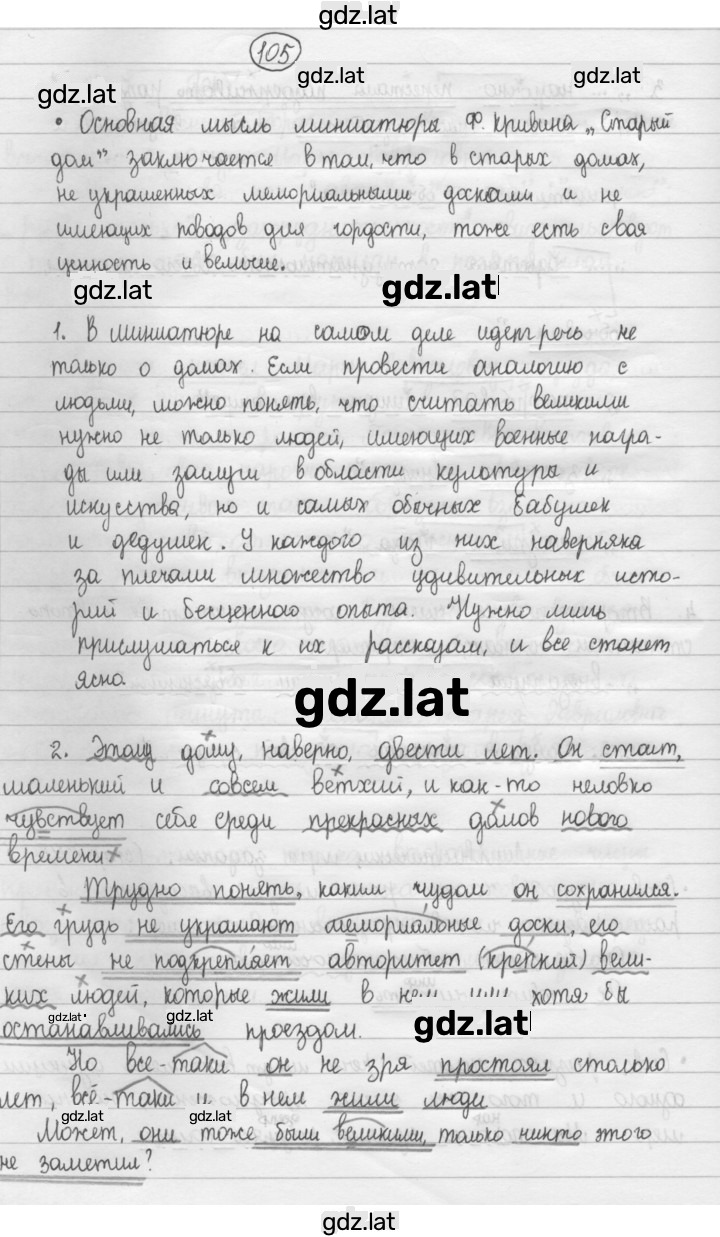 gdz.lat
105
gdz.lat
gdz.lat
gdz.lat
• Основная мысль миниатюры Ф. Кривина „Старый
дом” заключается в том, что в старых домах,
не украшенных мемориальными досками и не
имеющих поводов для гордости, тоже есть своя
ценность и величие.
gdz.lat
gdz.lat
1. В миниатюре на самом деле идет речь не
только о домах. Если провести аналогию с
людьми, можно понять, что считать великими
нужно не только людей, имеющих военные награ-
ды или заслуги в области культуры и
искусства но и самых обычных бабушек
и дедушек. У каждого из них наверняка
за плечами множество удивительных исто-
рий и бесценного опыта. Нужно лишь
прислушаться к их рассказам, и все станет
ясно.
gdz.lat
2. Этому дому, наверно, двести лет. Он стоит,
маленький и совсем ветхий, и как-то неловко
чувствует себя среди прекрасных домов нового
времени.
Трудно понять, каким чудом он сохранился.
Его грудь не украшают мемориальные доски, его
стены не подкрепляет авторитет (крепкий) вели-
ких людей, которые жили в хотя бы
gdz.lat
gdz.lat
gdz.lat
останавливались проездом.
Но все-таки он не зря простоял столько
лет, всё-таки и в нем жили люди
gdz.lat
gdz.lat
Может, они тоже были великими, только никто этого
не заметил?
gdz.lat